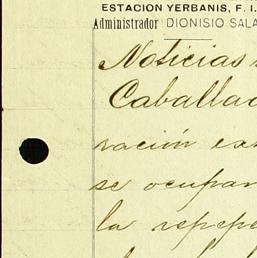 ESTACION YERBANIS, F. I.
Administrador DIONISIO SALA
Noticias
Caballad
ración ex
se ocupan
la repepe